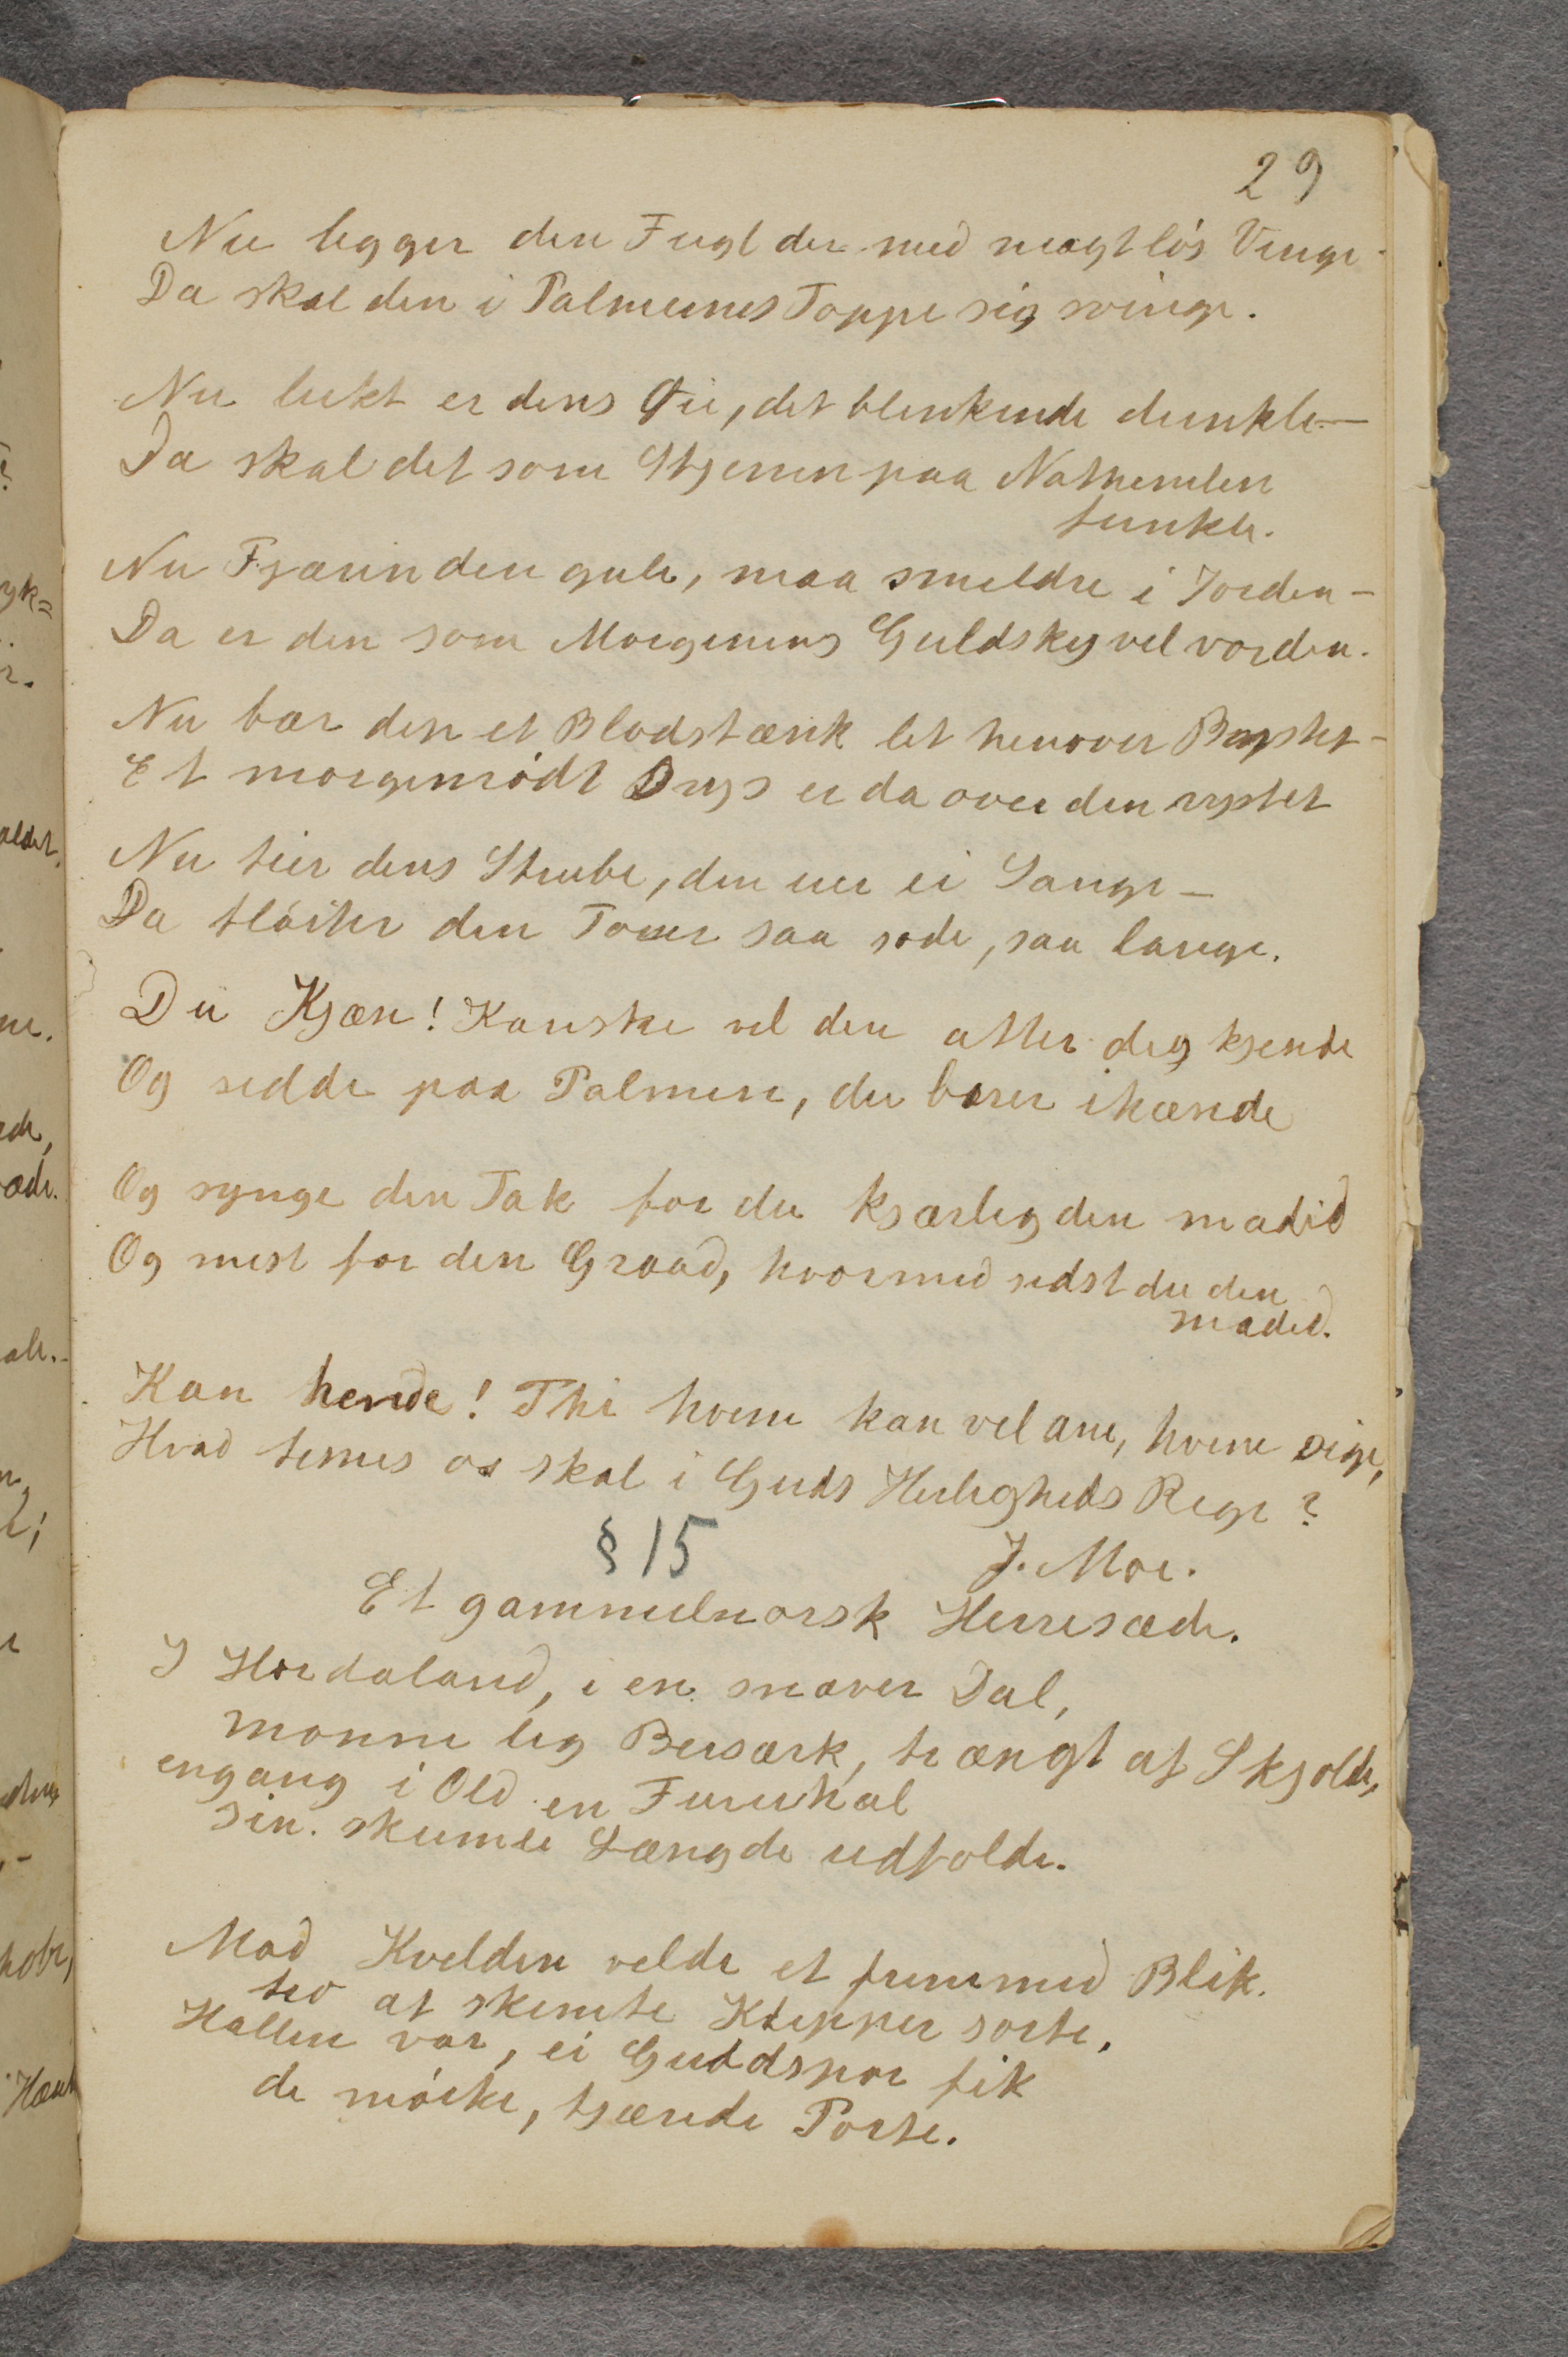 29
Nu ligger den Fugl der med magtlös Vinge -
Da skal den i Palmernes Toppe sig svinge.
Nu lukt er dens Øie, det blinkende dunkle —
Da skal det som Stjernen paa Nathimlen
funkle.
Nu Fjæren den gule, maa smuldre i Jorden -
Da er den som Morgenens Guldsky vel vorden.
Nu bær den et Blodstænk let henover Brystet -
Et morgenrödt Drys er da over den rystet
Nu tier dens Strube, den eier ei Sange -
Da flöiter den Toner saa søde, saa lange.
Du Kjære! Kanske vil den atter dig kjende
Og sidde paa Palmen, du bærer ihænde
Og synge den Tak for du kjærlig den madid
Og mest for den Graad, hvormed sidst du den
madid.
Kan hende! Thi hvem kan vel ane, hvem sige,
Hvad times os skal i Guds Herligheds Rige?
§ 15
J. Moe.
Et gammelnorsk Herresæde.
I Hordaland, i en snæver Dal,
monne lig Bersærk, trængt af Skjolde,
engang i Old en Furuhal
sin skumle Længde udfolde.
Mod Kvelden velde et fremmed Blik.
tro at skimte Klipper sorte.
Hallen var, ei Guldspor fik
de mörke, tjærede Porte.